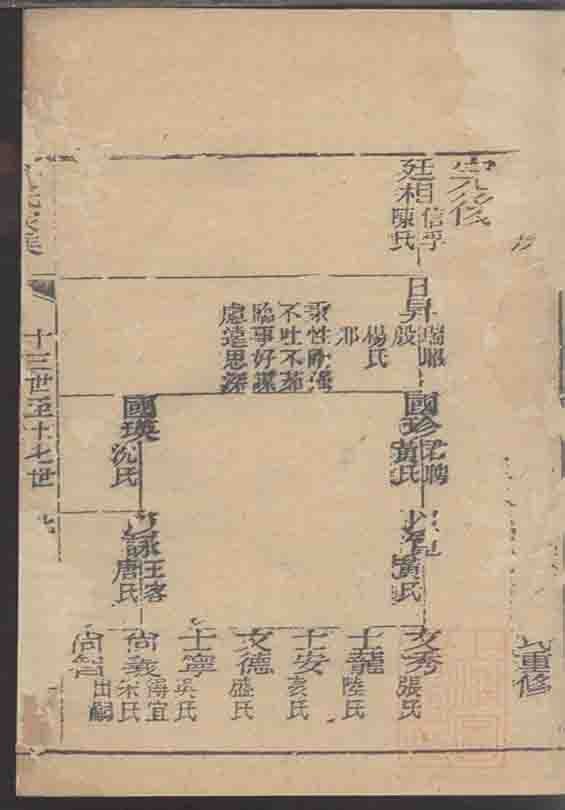 完後
廷相 信孚
陳氏
日昇 瑞昭
殷
楊氏
邢
秉性剛强
不吐不茹
臨事好謀
慮遠思深
國珍 君聘
黃氏
國瑛
沈氏
黃氏
詠 王客
唐氏
文秀
張氏
士龍
陸氏
士安
文德
盛氏
士寧
吳氏
尚義 濟宜
宋氏
尚智
出嗣
十三世至十七世
重修